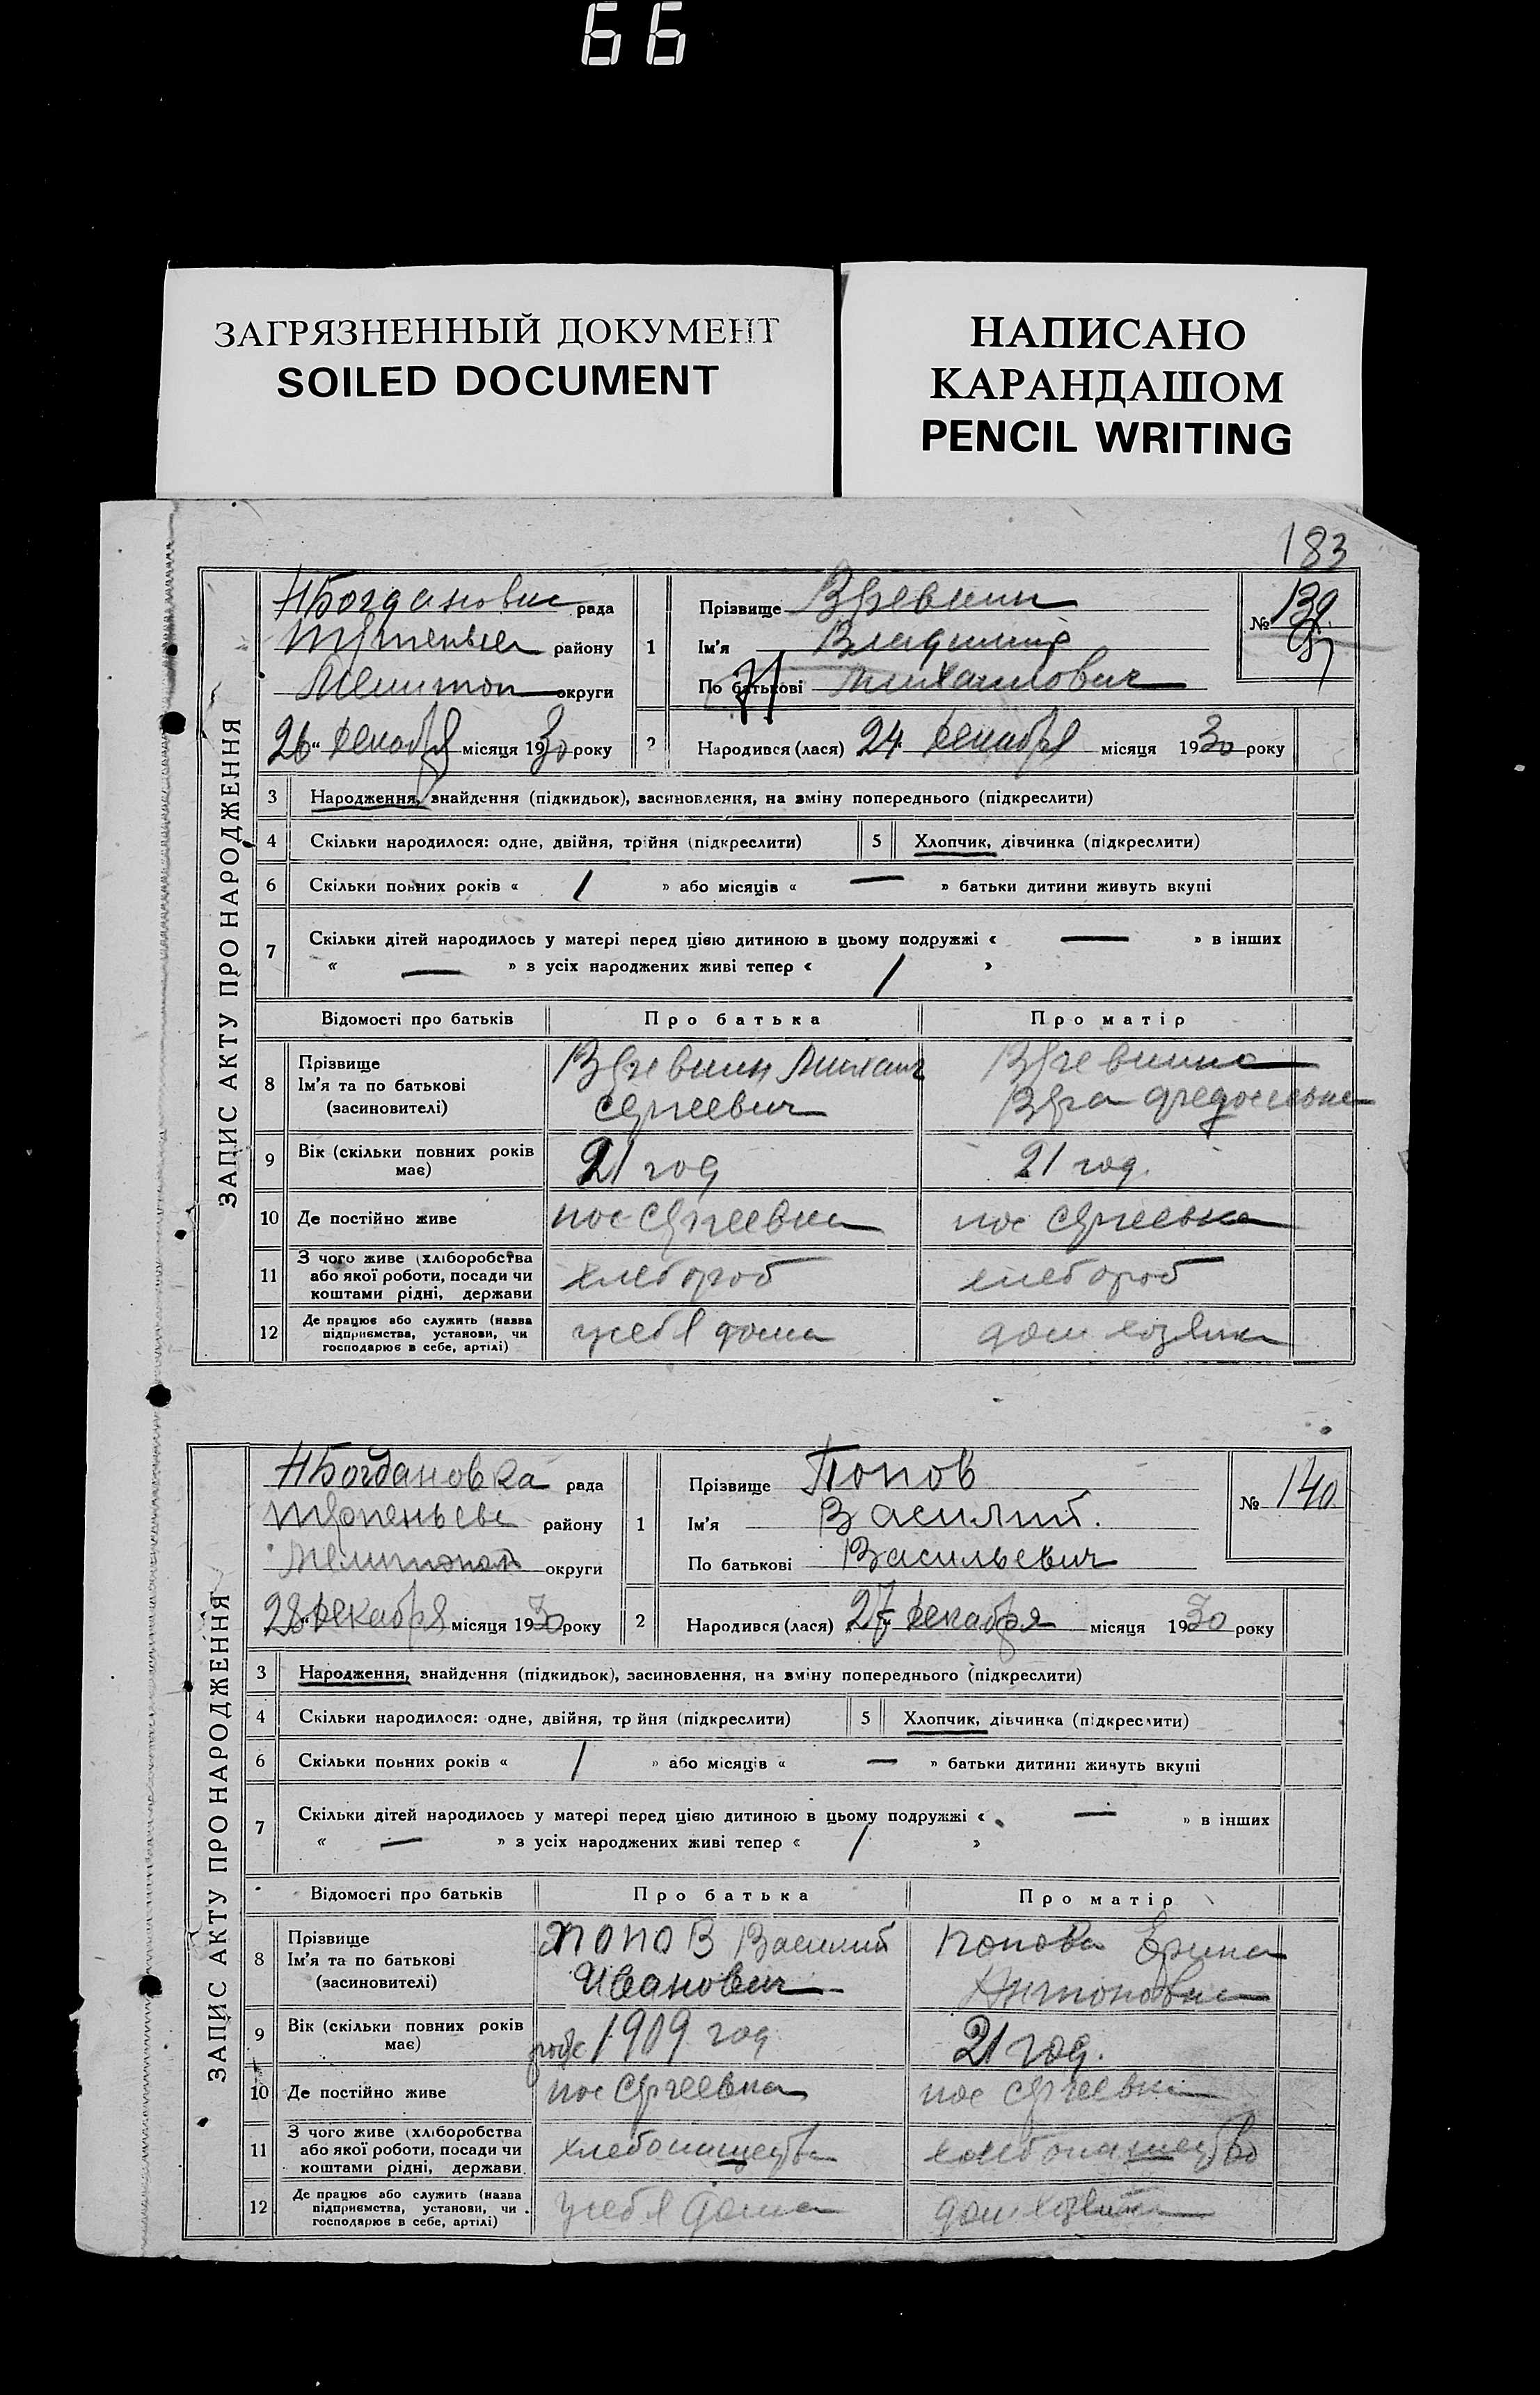 66
ЗАГРЯЗНЕННЫЙ ДОКУМЕНТ
SOILED DOCUMENT
НАПИСАНО
КАРАНДАШОМ
PENCIL WRITING
183
ЗАПИС АКТУ ПРО НАРОДЖЕННЯ
рада
району
округи
26 декабря місяця 1930 року
1
Прізвище
Ім'я Владимир
По батькові Михайлович
№
2 Народився (лася) 24 декабря місяця 1930 року
3 Народження, знайдення (підкидьок), засиновлення, на зміну попереднього (підкреслити)
4 Скільки народилося: одне, двійня, трійня (підкреслити) 5 Хлопчик, дівчинка (підкреслити)
6 Скільки повних років « / » або місяців « — » батьки дитини живуть вкупі
7 Скільки дітей народилось у матері перед цією дитиною в цьому подружжі « — » в інших
« — » з усіх народжених живі тепер « / »
Відомості про батьків Про батька Про матір
8 Прізвище
Ім'я та по батькові
(засиновителі)
Сергеевич
Вера
9 Вік (скільки повних років має) 21 год 21 год.
10 Де постійно живе пос Сергеевка пос Сергеевка
11 З чого живе (хліборобства або якої роботи, посади чи коштами рідні, держави хлебороб хлебороб
12 Де працює або служить (назва підприємства, установи, чи господарює в себе, артілі) усебя дома дом хозяйка
ЗАПИС АКТУ ПРО НАРОДЖЕННЯ
НБогдановка рада
району
округи
28 декабря місяця 1930 року
1
Прізвище Попов
Ім'я Василий.
По батькові Васильевич
№ 140
2 Народився (лася) 27 декабря місяця 1930 року
3 Народження, знайдення (підкидьок), засиновлення, на зміну попереднього (підкреслити)
4 Скільки народилося: одне, двійня, трійня (підкреслити) 5 Хлопчик, дівчинка (підкреслити)
6 Скільки повних років « / » або місяців « — » батьки дитини живуть вкупі
7 Скільки дітей народилось у матері перед цією дитиною в цьому подружжі « — » в інших
« — » з усіх народжених живі тепер « / »
Відомості про батьків Про батька Про матір
8 Прізвище
Ім'я та по батькові
(засиновителі)
Попов Василий
Иванович
Попова Ерина
Антоновна
9 Вік (скільки повних років має) 1909 год 21 год.
10 Де постійно живе пос Сергеевка пос Сергеевка
11 З чого живе (хліборобства або якої роботи, посади чи коштами рідні, держави хлебопашество
12 Де працює або служить (назва підприємства, установи, чи господарює в себе, артілі) усебя дома дом хозяйка